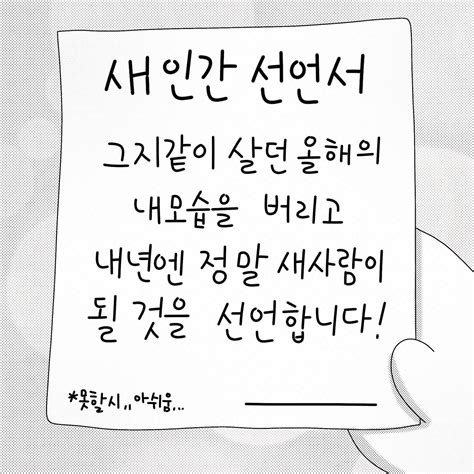 새 인간 선언서
그지같이 살던 올해의
내모습을 버리고
내년엔 정말 새사람이
될 것을 선언합니다!
*못할시,, 아쉬움...